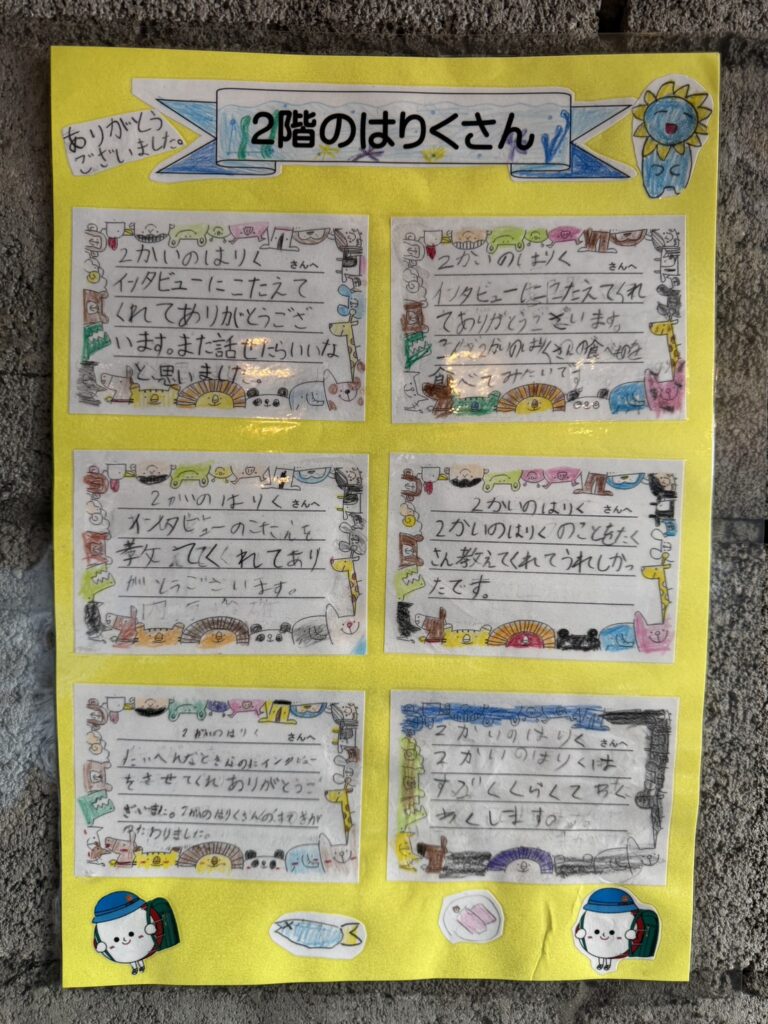 2階のはりくさん
ありがとう
ございました。
2かいのはりく さんへ
インタビューにこたえて
くれてありがとうござ
います。また話せたらいいな
と、思いました。
2かいのはりく さんへ
インタビューにこたえてくれ
てありがとうございます。
2かいのはりくさんの食べものを
食べてみたいです
2かいのはりく さんへ
インタビューのこたえを
教えててくれてあり
がとうございます。
2かいのはりく さんへ
2かいのはりくのことをたく
さん教えてくれてうれしかっ
たです。
2かいのはりく さんへ
たいへんなときなのにインタビュー
をさせてくれありがとうご
ざいました。2かいのはりくさんのすてきが
つたわりました。
2かいのはりく さんへ
2かいのはりくは
すごくくらくてわく
わくします。